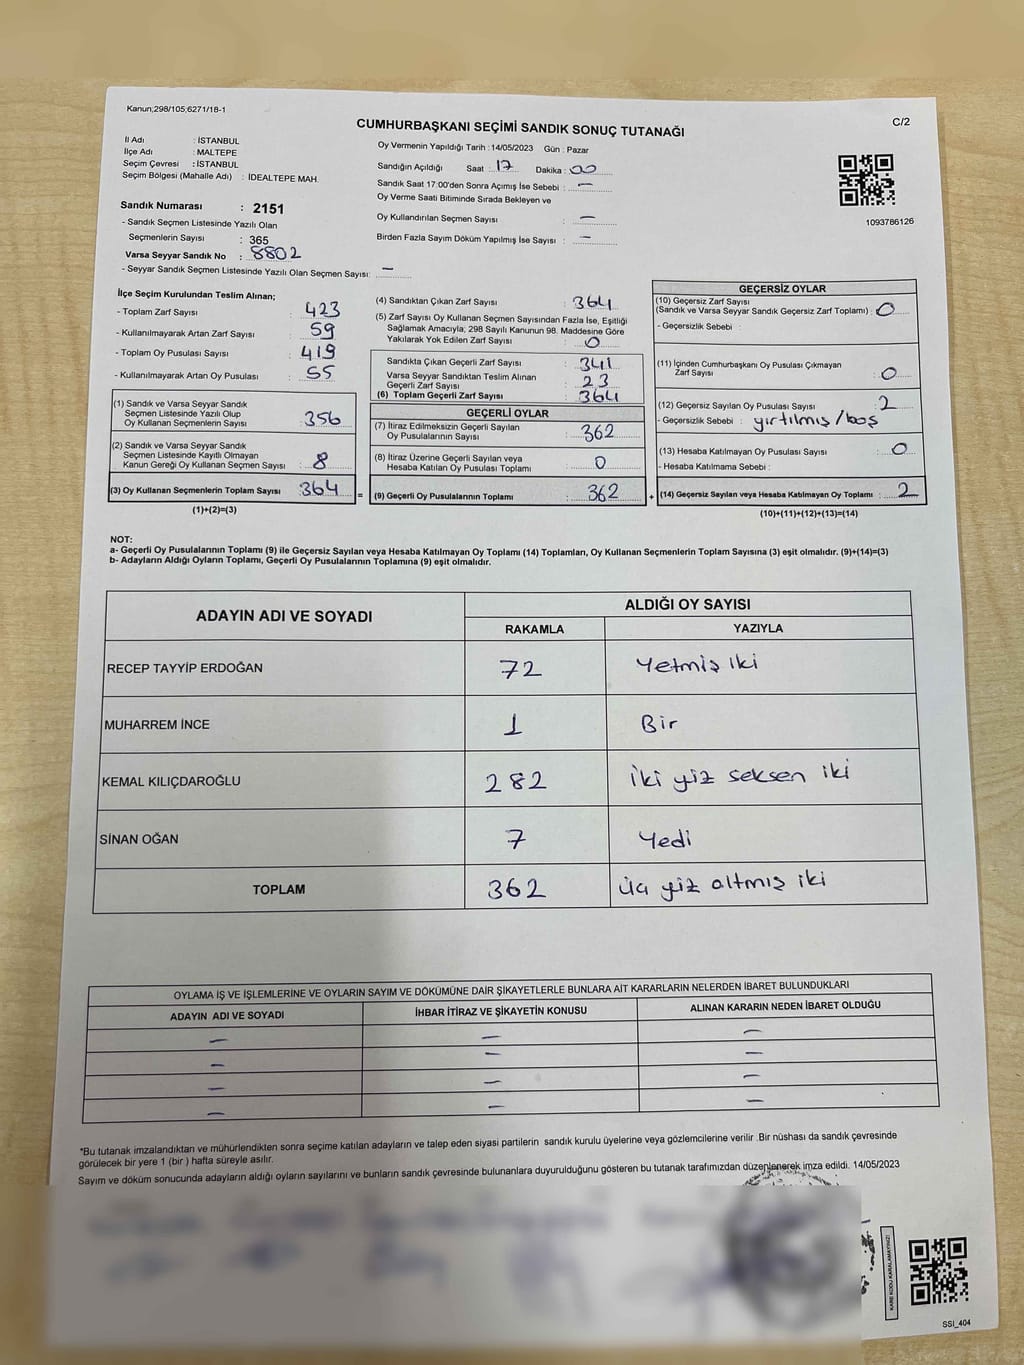 Kanun;298/105;6271/18-1
C/2
CUMHURBAŞKANI SEÇİMİ SANDIK SONUÇ TUTANAĞI
İl Adı : İSTANBUL
İlçe Adı : MALTEPE
Seçim Çevresi : İSTANBUL
Seçim Bölgesi (Mahalle Adı) : İDEALTEPE MAH.
Sandık Numarası : 2151
- Sandık Seçmen Listesinde Yazılı Olan
Seçmenlerin Sayısı : 365
Varsa Seyyar Sandık No : 8802
- Seyyar Sandık Seçmen Listesinde Yazılı Olan Seçmen Sayısı: —
Oy Vermenin Yapıldığı Tarih : 14/05/2023 Gün : Pazar
Sandığın Açıldığı Saat : 17 Dakika : 00
Sandık Saat 17:00'den Sonra Açımış İse Sebebi : —
Oy Verme Saati Bitiminde Sırada Bekleyen ve
Oy Kullandırılan Seçmen Sayısı : —
Birden Fazla Sayım Döküm Yapılmış İse Sayısı : —
1093786126
İlçe Seçim Kurulundan Teslim Alınan;
- Toplam Zarf Sayısı : 423
- Kullanılmayarak Artan Zarf Sayısı : 59
- Toplam Oy Pusulası Sayısı : 419
- Kullanılmayarak Artan Oy Pusulası : 55
(1) Sandık ve Varsa Seyyar Sandık
Seçmen Listesinde Yazılı Olup
Oy Kullanan Seçmenlerin Sayısı : 356
(2) Sandık ve Varsa Seyyar Sandık
Seçmen Listesinde Kayıtlı Olmayan
Kanun Gereği Oy Kullanan Seçmen Sayısı : 8
(3) Oy Kullanan Seçmenlerin Toplam Sayısı : 364 =
(1)+(2)=(3)
(4) Sandıktan Çıkan Zarf Sayısı : 364
(5) Zarf Sayısı Oy Kullanan Seçmen Sayısından Fazla İse, Eşitliği
Sağlamak Amacıyla; 298 Sayılı Kanunun 98. Maddesine Göre
Yakılarak Yok Edilen Zarf Sayısı : 0
Sandıkta Çıkan Geçerli Zarf Sayısı : 341
Varsa Seyyar Sandıktan Teslim Alınan
Geçerli Zarf Sayısı : 23
(6) Toplam Geçerli Zarf Sayısı : 364
GEÇERLİ OYLAR
(7) İtiraz Edilmeksizin Geçerli Sayılan
Oy Pusulalarının Sayısı : 362
(8) İtiraz Üzerine Geçerli Sayılan veya
Hesaba Katılan Oy Pusulası Toplamı : 0
(9) Geçerli Oy Pusulalarının Toplamı : 362 +
GEÇERSİZ OYLAR
(10) Geçersiz Zarf Sayısı
(Sandık ve Varsa Seyyar Sandık Geçersiz Zarf Toplamı) : 0
- Geçersizlik Sebebi :
(11) İçinden Cumhurbaşkanı Oy Pusulası Çıkmayan
Zarf Sayısı : 0
(12) Geçersiz Sayılan Oy Pusulası Sayısı : 2
- Geçersizlik Sebebi : yırtılmış/boş
(13) Hesaba Katılmayan Oy Pusulası Sayısı : 0
- Hesaba Katılmama Sebebi :
(14) Geçersiz Sayılan veya Hesaba Katılmayan Oy Toplamı : 2
(10)+(11)+(12)+(13)=(14)
NOT:
a- Geçerli Oy Pusulalarının Toplamı (9) ile Geçersiz Sayılan veya Hesaba Katılmayan Oy Toplamı (14) Toplamları, Oy Kullanan Seçmenlerin Toplam Sayısına (3) eşit olmalıdır. (9)+(14)=(3)
b- Adayların Aldığı Oyların Toplamı, Geçerli Oy Pusulalarının Toplamına (9) eşit olmalıdır.
ADAYIN ADI VE SOYADI
ALDIĞI OY SAYISI
RAKAMLA YAZIYLA
RECEP TAYYİP ERDOĞAN 72 Yetmiş iki
MUHARREM İNCE 1 Bir
KEMAL KILIÇDAROĞLU 282 iki yiz seksen iki
SİNAN OĞAN 7 Yedi
TOPLAM 362 üç yiz altmış iki
OYLAMA İŞ VE İŞLEMLERİNE VE OYLARIN SAYIM VE DÖKÜMÜNE DAİR ŞİKAYETLERLE BUNLARA AİT KARARLARIN NELERDEN İBARET BULUNDUKLARI
ADAYIN ADI VE SOYADI İHBAR İTİRAZ VE ŞİKAYETİN KONUSU ALINAN KARARIN NEDEN İBARET OLDUĞU
— — —
— — —
— — —
— — —
*Bu tutanak imzalandıktan ve mühürlendikten sonra seçime katılan adayların ve talep eden siyasi partilerin sandık kurulu üyelerine veya gözlemcilerine verilir .Bir nüshası da sandık çevresinde
görülecek bir yere 1 (bir ) hafta süreyle asılır.
Sayım ve döküm sonucunda adayların aldığı oyların sayılarını ve bunların sandık çevresinde bulunanlara duyurulduğunu gösteren bu tutanak tarafımızdan düzenlenerek imza edildi. 14/05/2023
KARE KODU KARALAMAYINIZ!
SSI_404